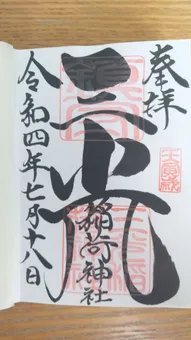 奉拝
三光
稲荷神社
令和四年七月十八日